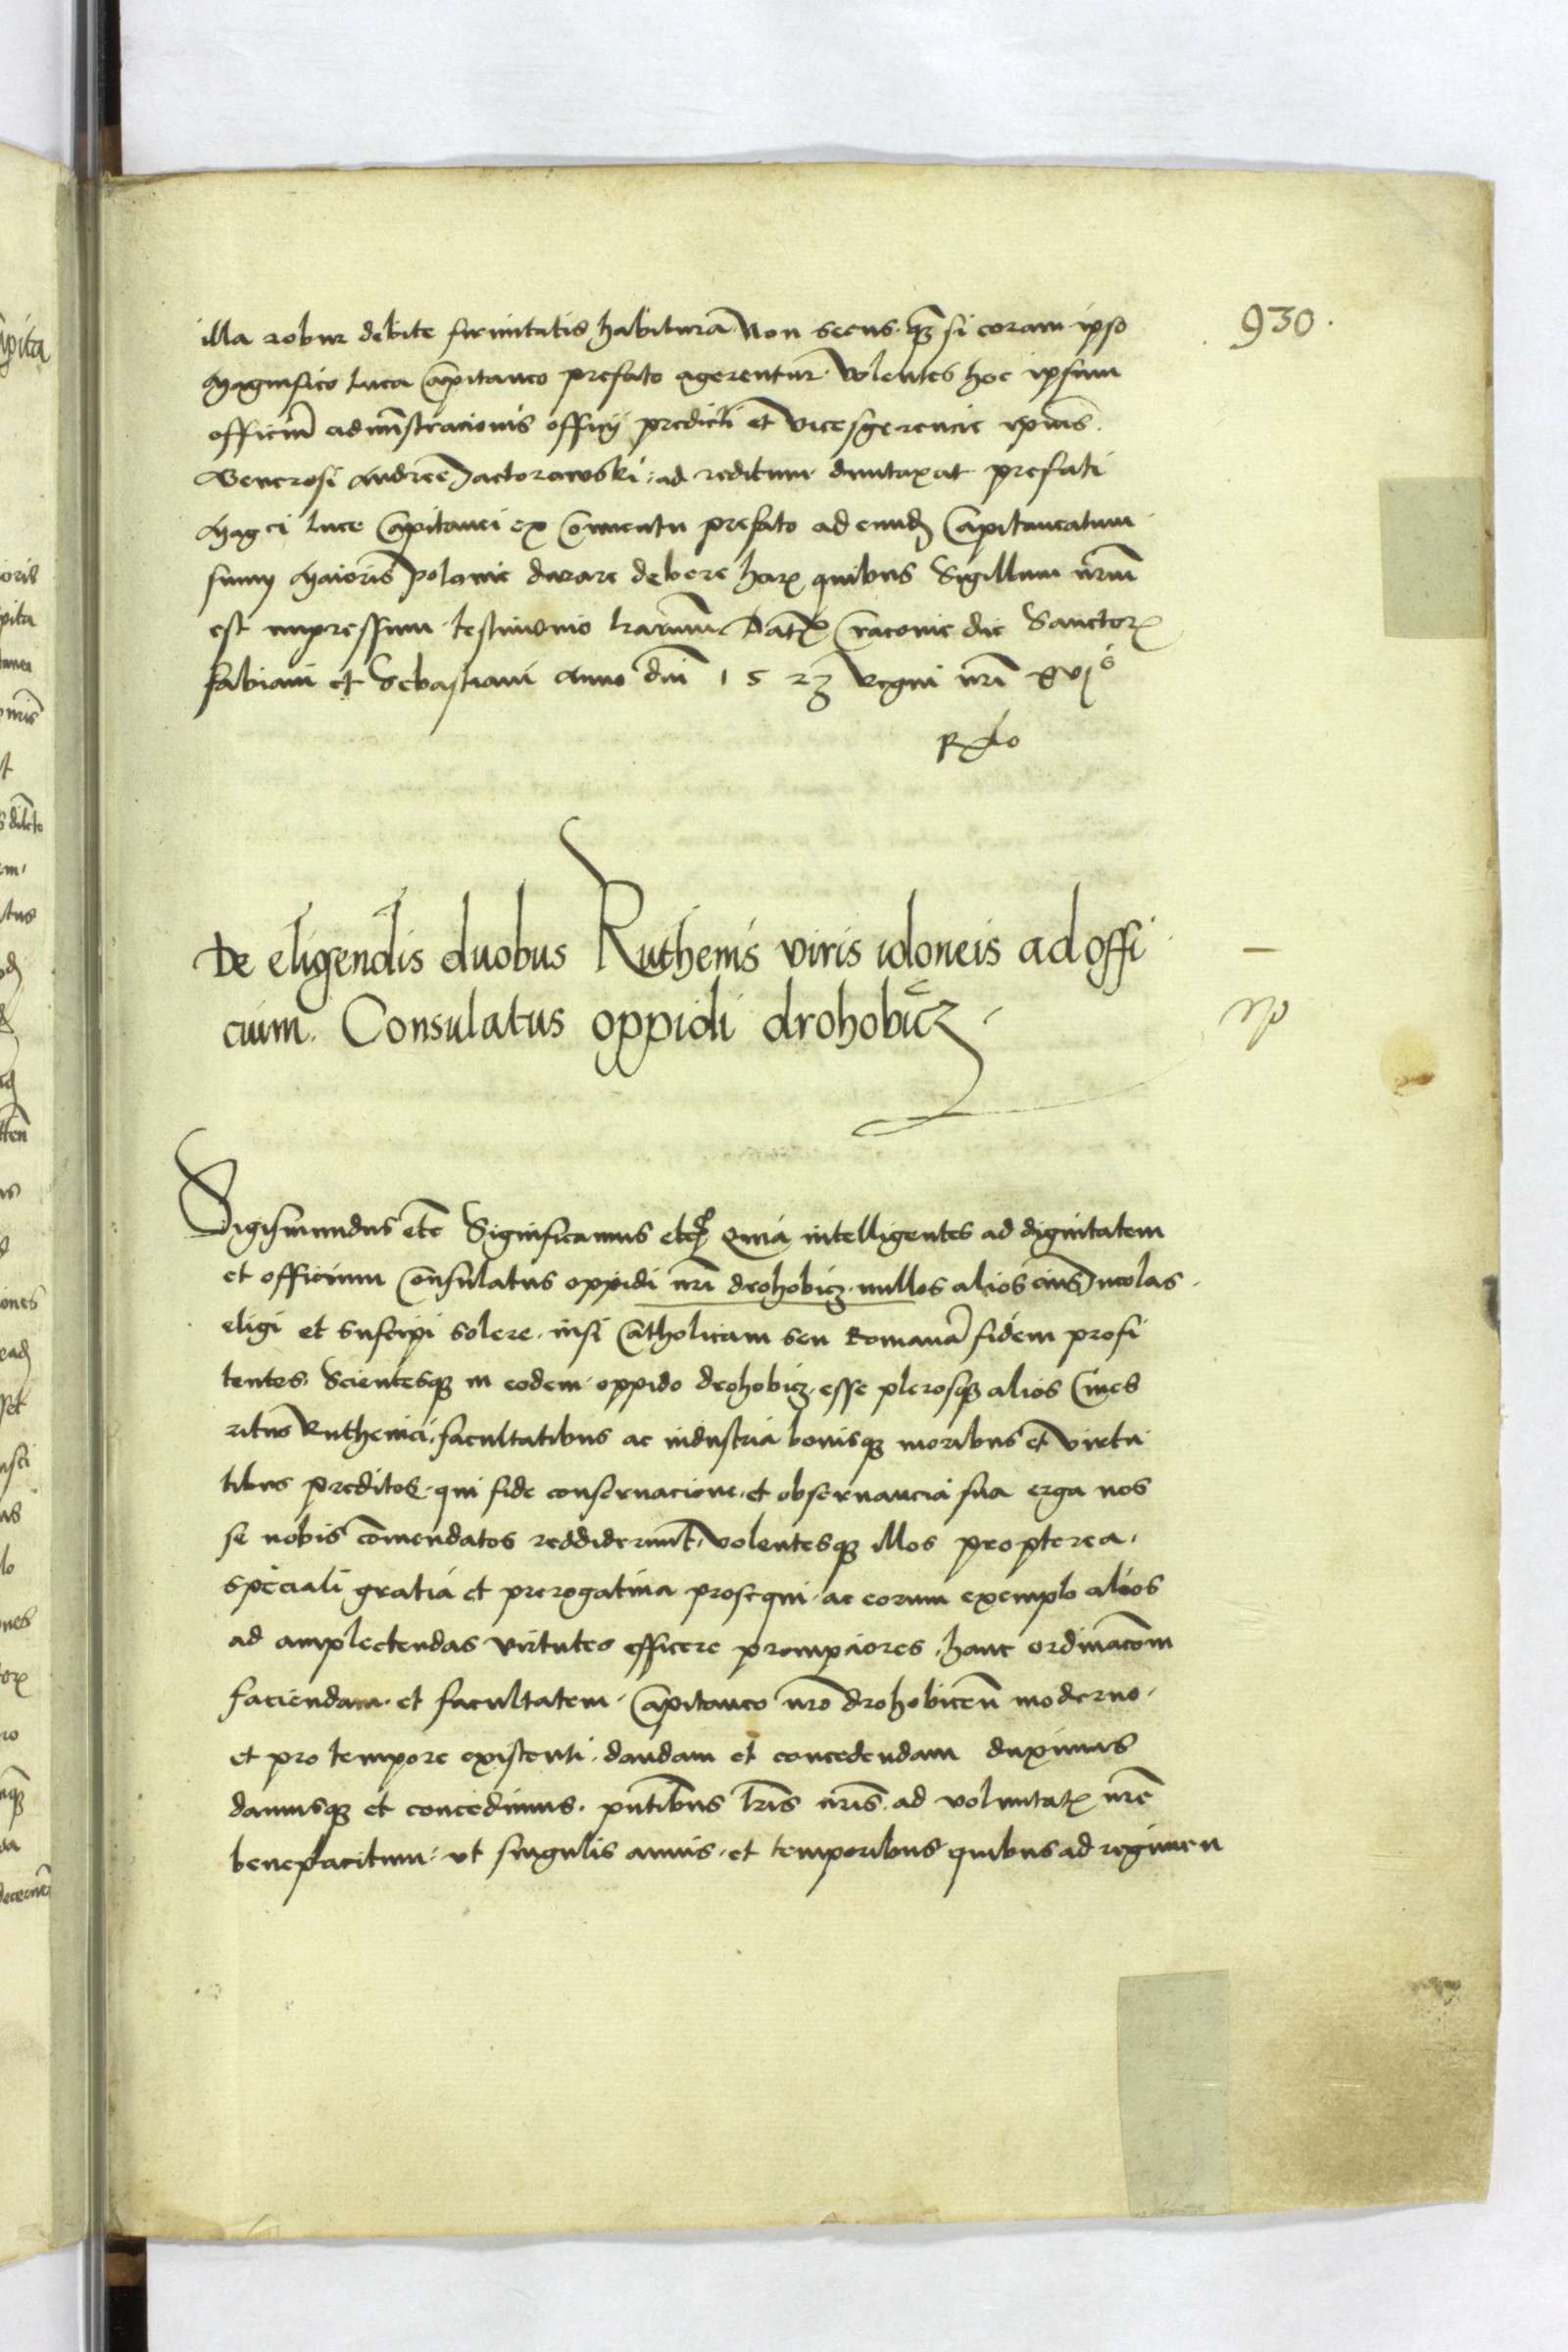 930.
illa robur debite firmitatis habiturã Non secus qȝ si coram ipso
Magnifico luca Capitaneo prefato agerentur volentes hoc ipsum
officiũ administracionis officij predicti et vicesgerencie ipsius
Generosi Andree Jactorowski ad reditum duntaxat prefati
Mag ci luce Capitanei ex Conventu prefato ad eundẽ Capitaneatum
suum Maioris polonie durare debere harꝝ quibus Sigillum nrm̃
est impressum testimonio lrarum̃ Datꝝ Cracovie die Sanctorꝝ
fabiani et Sebastiani Anno dni 1523 Regni nri xvjᵒ
De eligendis duobus Ruthenis viris idoneis ad offi
cium Consulatus oppidi drohobicz
Sigismundus etc Significamus etc Quia intelligentes ad dignitatem
et officium Consulatus oppidi nri drohobicz nullos alios eius Incolas
eligi et suscipi solere nisi Catholicam seu Romanã fidem profi
tentes Scientesqȝ in eodem oppido drohobicz esse plerosqȝ alios Cives
ritus Ruthenici facultatibus ac industria bonisqȝ moribus et virtu
tibus preditos qui fide conservacione et observancia sua erga nos
se nobis comendatos reddiderunt volentesqȝ illos propterea
speciali gratia et prerogativa prosequi ac eorum exemplo alios
ad amplectendas virtutes efficere prompciores hanc ordinacom̃
faciendam et facultatem Capitaneo nro drohobiceñ moderno
et pro tempore existenti dandam et concedendam duximus
damusqȝ et concedimus pntibus lris nris ad voluntatꝭ nre
beneplacitum ut singulis annis et temporibus quibus ad regimen